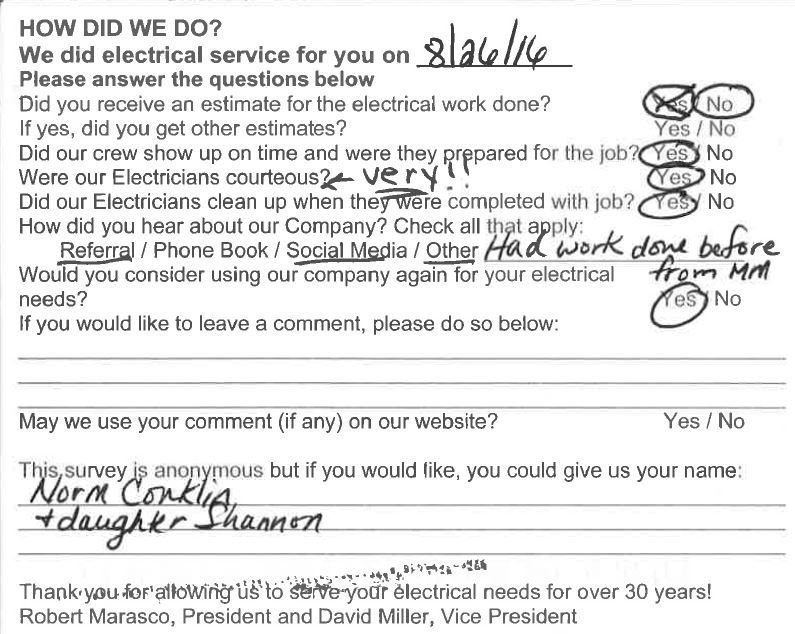 HOW DID WE DO?
We did electrical service for you on 8/26/16
Please answer the questions below
Did you receive an estimate for the electrical work done? Yes / No
If yes, did you get other estimates? Yes / No
Did our crew show up on time and were they prepared for the job? Yes / No
Were our Electricians courteous? ← very!! Yes / No
Did our Electricians clean up when they were completed with job? Yes / No
How did you hear about our Company? Check all that apply:
Referral / Phone Book / Social Media / Other Had work done before
from MM
Would you consider using our company again for your electrical
needs? Yes / No
If you would like to leave a comment, please do so below:
May we use your comment (if any) on our website? Yes / No
This survey is anonymous but if you would like, you could give us your name:
Norm Conklin
+ daughter Shannon
Thank you for allowing us to serve your electrical needs for over 30 years!
Robert Marasco, President and David Miller, Vice President